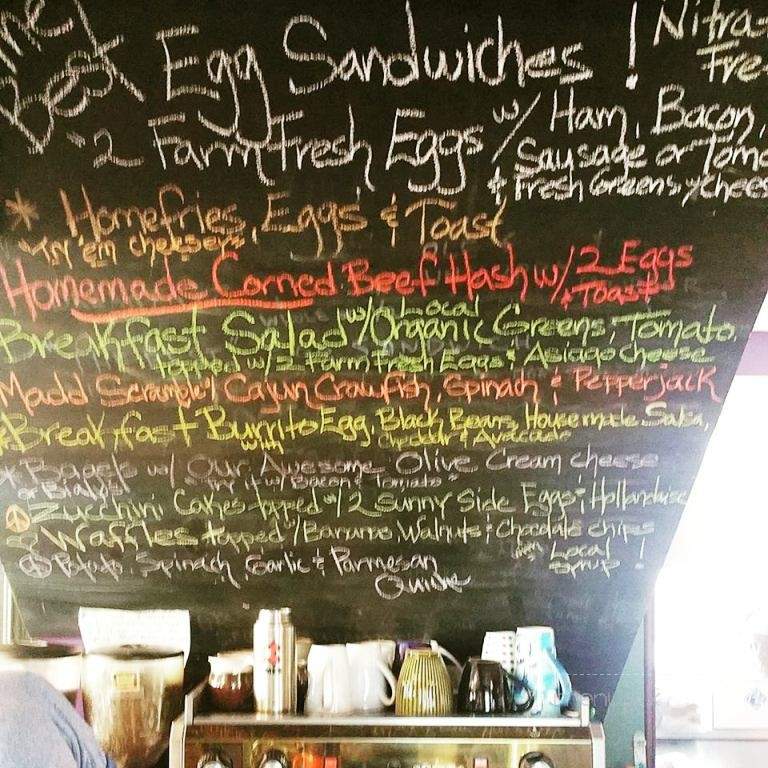 Best Egg Sandwiches!
Nitra
Fre
~2 Farm Fresh Eggs w/ Ham, Bacon,
Sausage or Toma
+ Fresh Greens y chees
* Homefries, Eggs & Toast
"Try 'em cheesey"
Homemade Corned Beef Hash w/ 2 Eggs
+ Toast
Breakfast Salad w/ Local
Organic Greens, Tomato,
topped w/ 2 Farm Fresh Eggs & Asiago cheese
Madd Scramble! Cajun Crawfish, Spinach & Pepperjack
*Breakfast Burrito Egg, Black Beans, Housemade Salsa,
with cheddar & Avacado
* Bagels w/ Our Awesome Olive Cream cheese
or Bialys "Try it w/ Bacon & Tomato"
Zucchini Cakes topped w/ 2 Sunny Side Eggs & Hollandaise
Waffles topped w/ Bananas, Walnuts & Chocolate chips
Local
Syrup!
Potato, Spinach, Garlic & Parmesan
Quiche